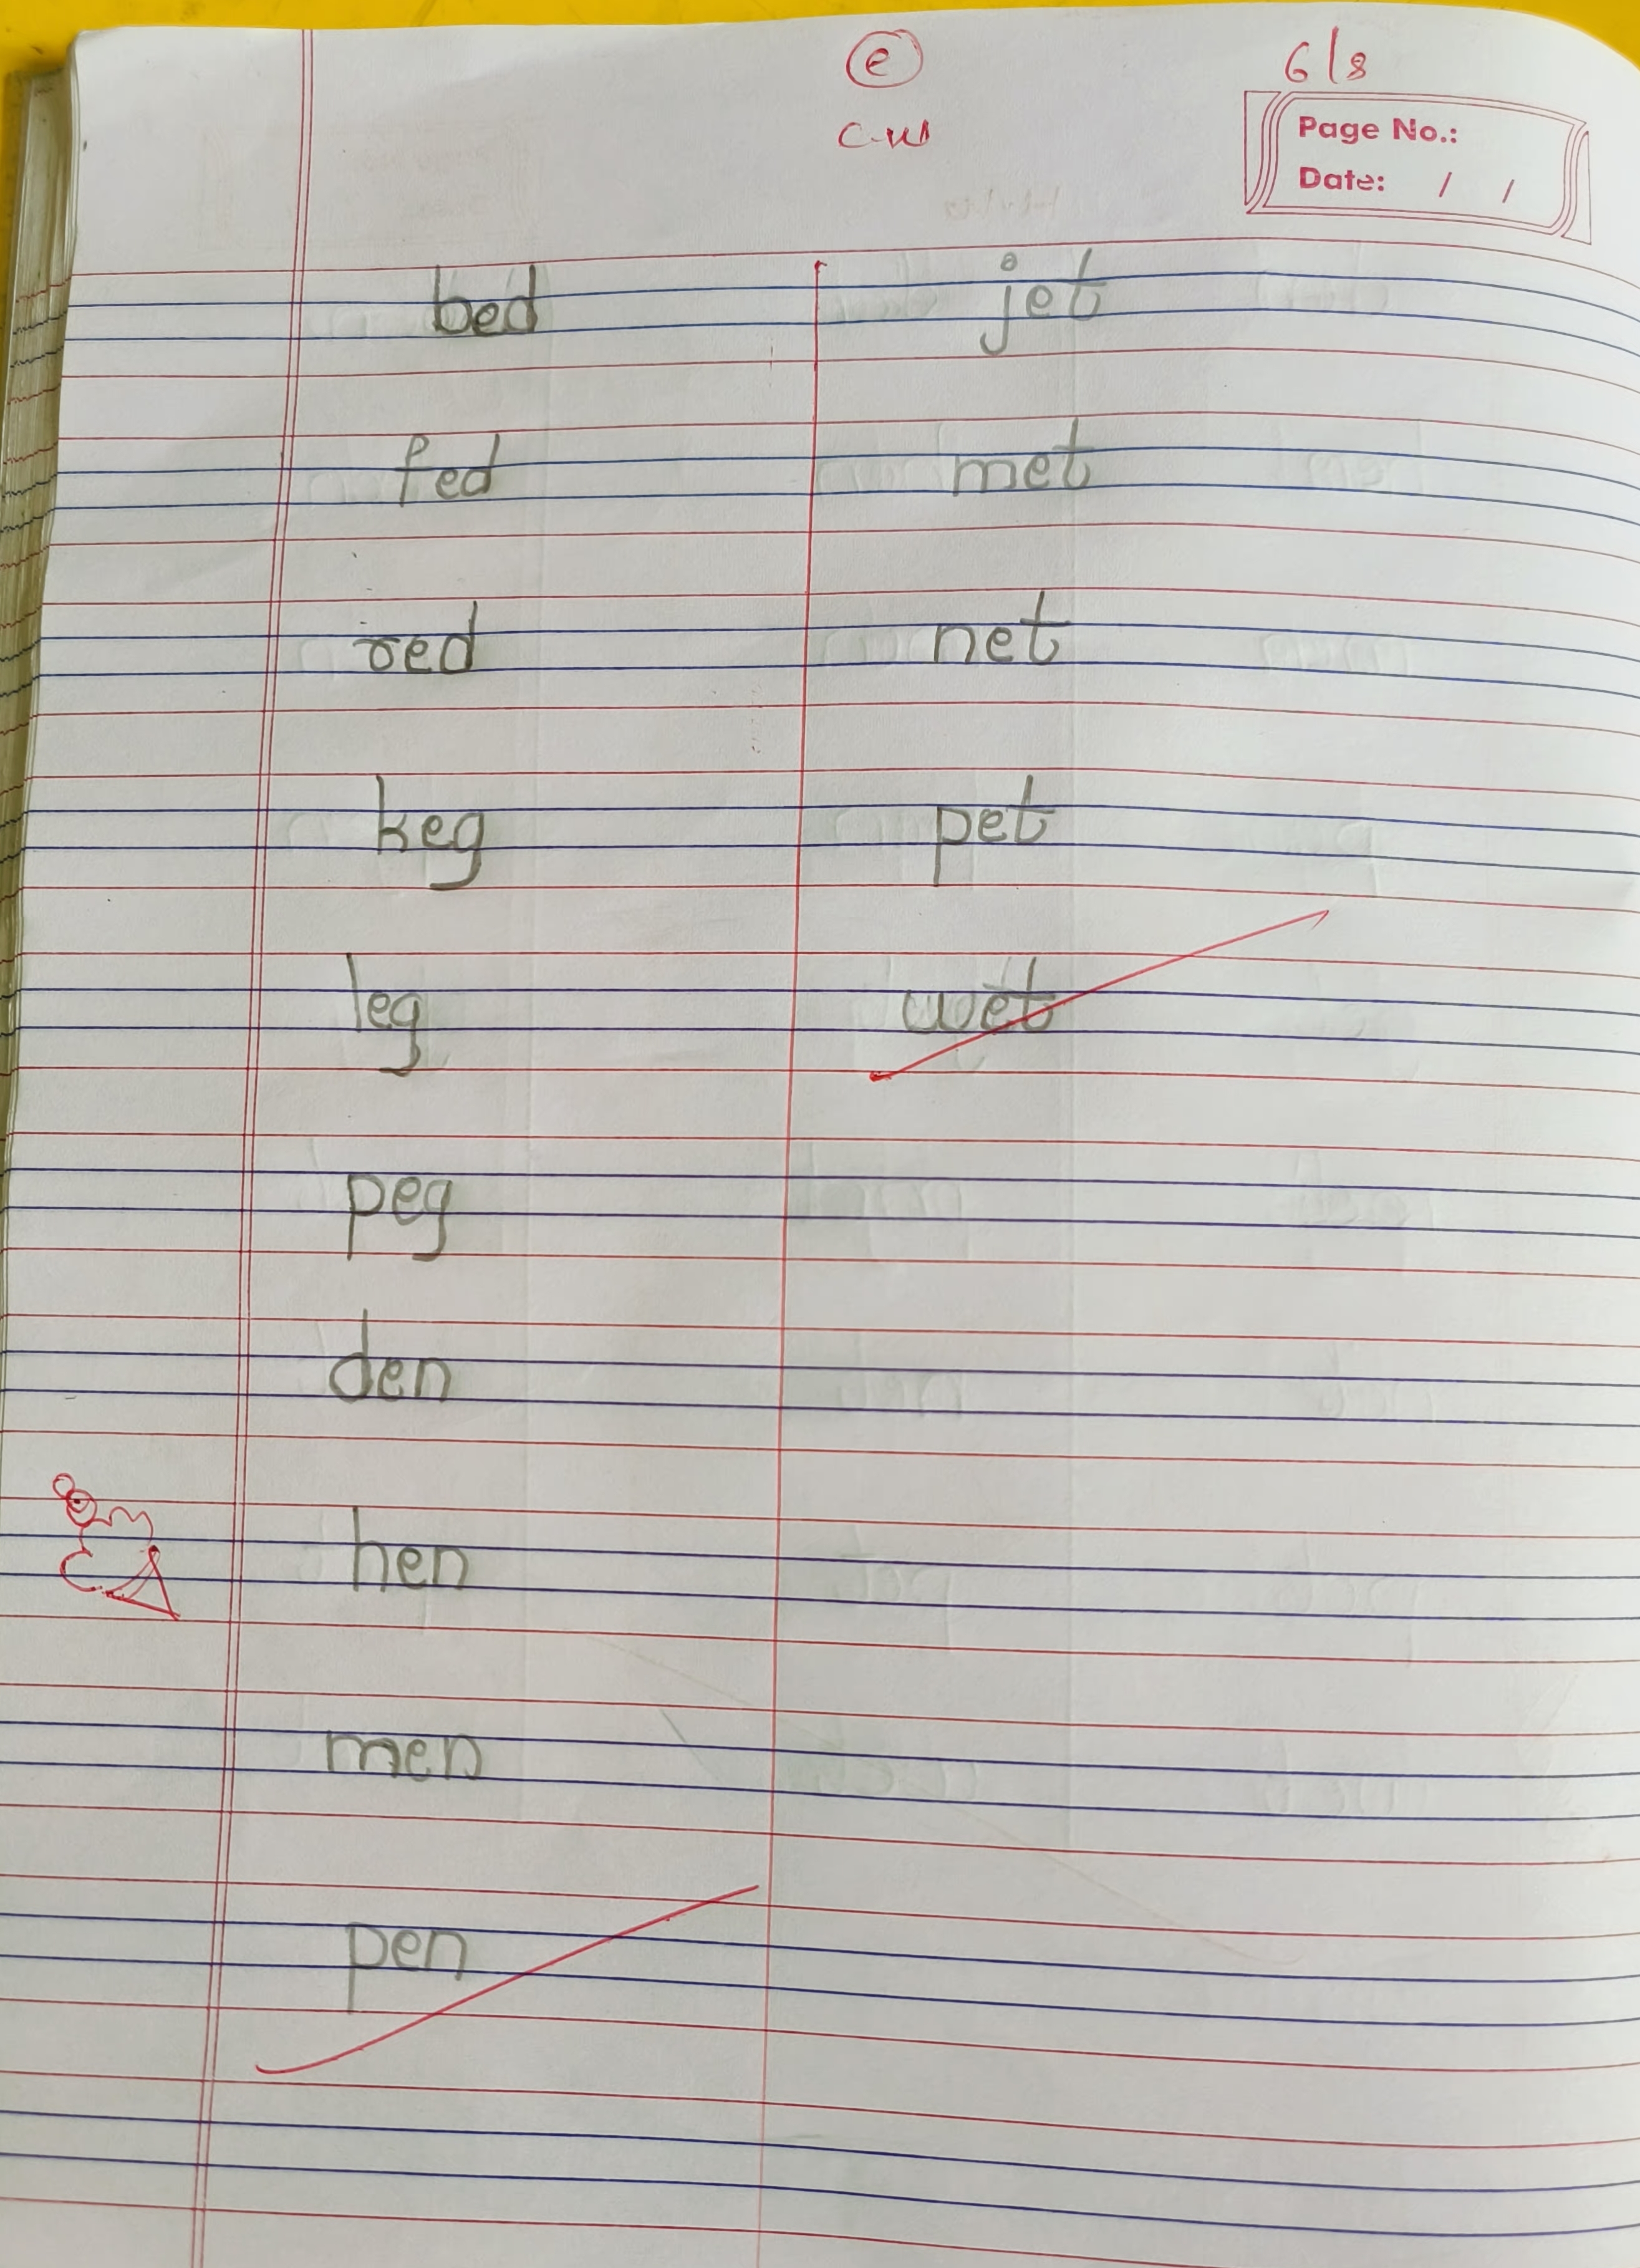 e
6/8
C-W
Page No.:
Date: / /
bed
fed
red
keg
leg
peg
den
hen
men
pen
jet
met
net
pet
wet